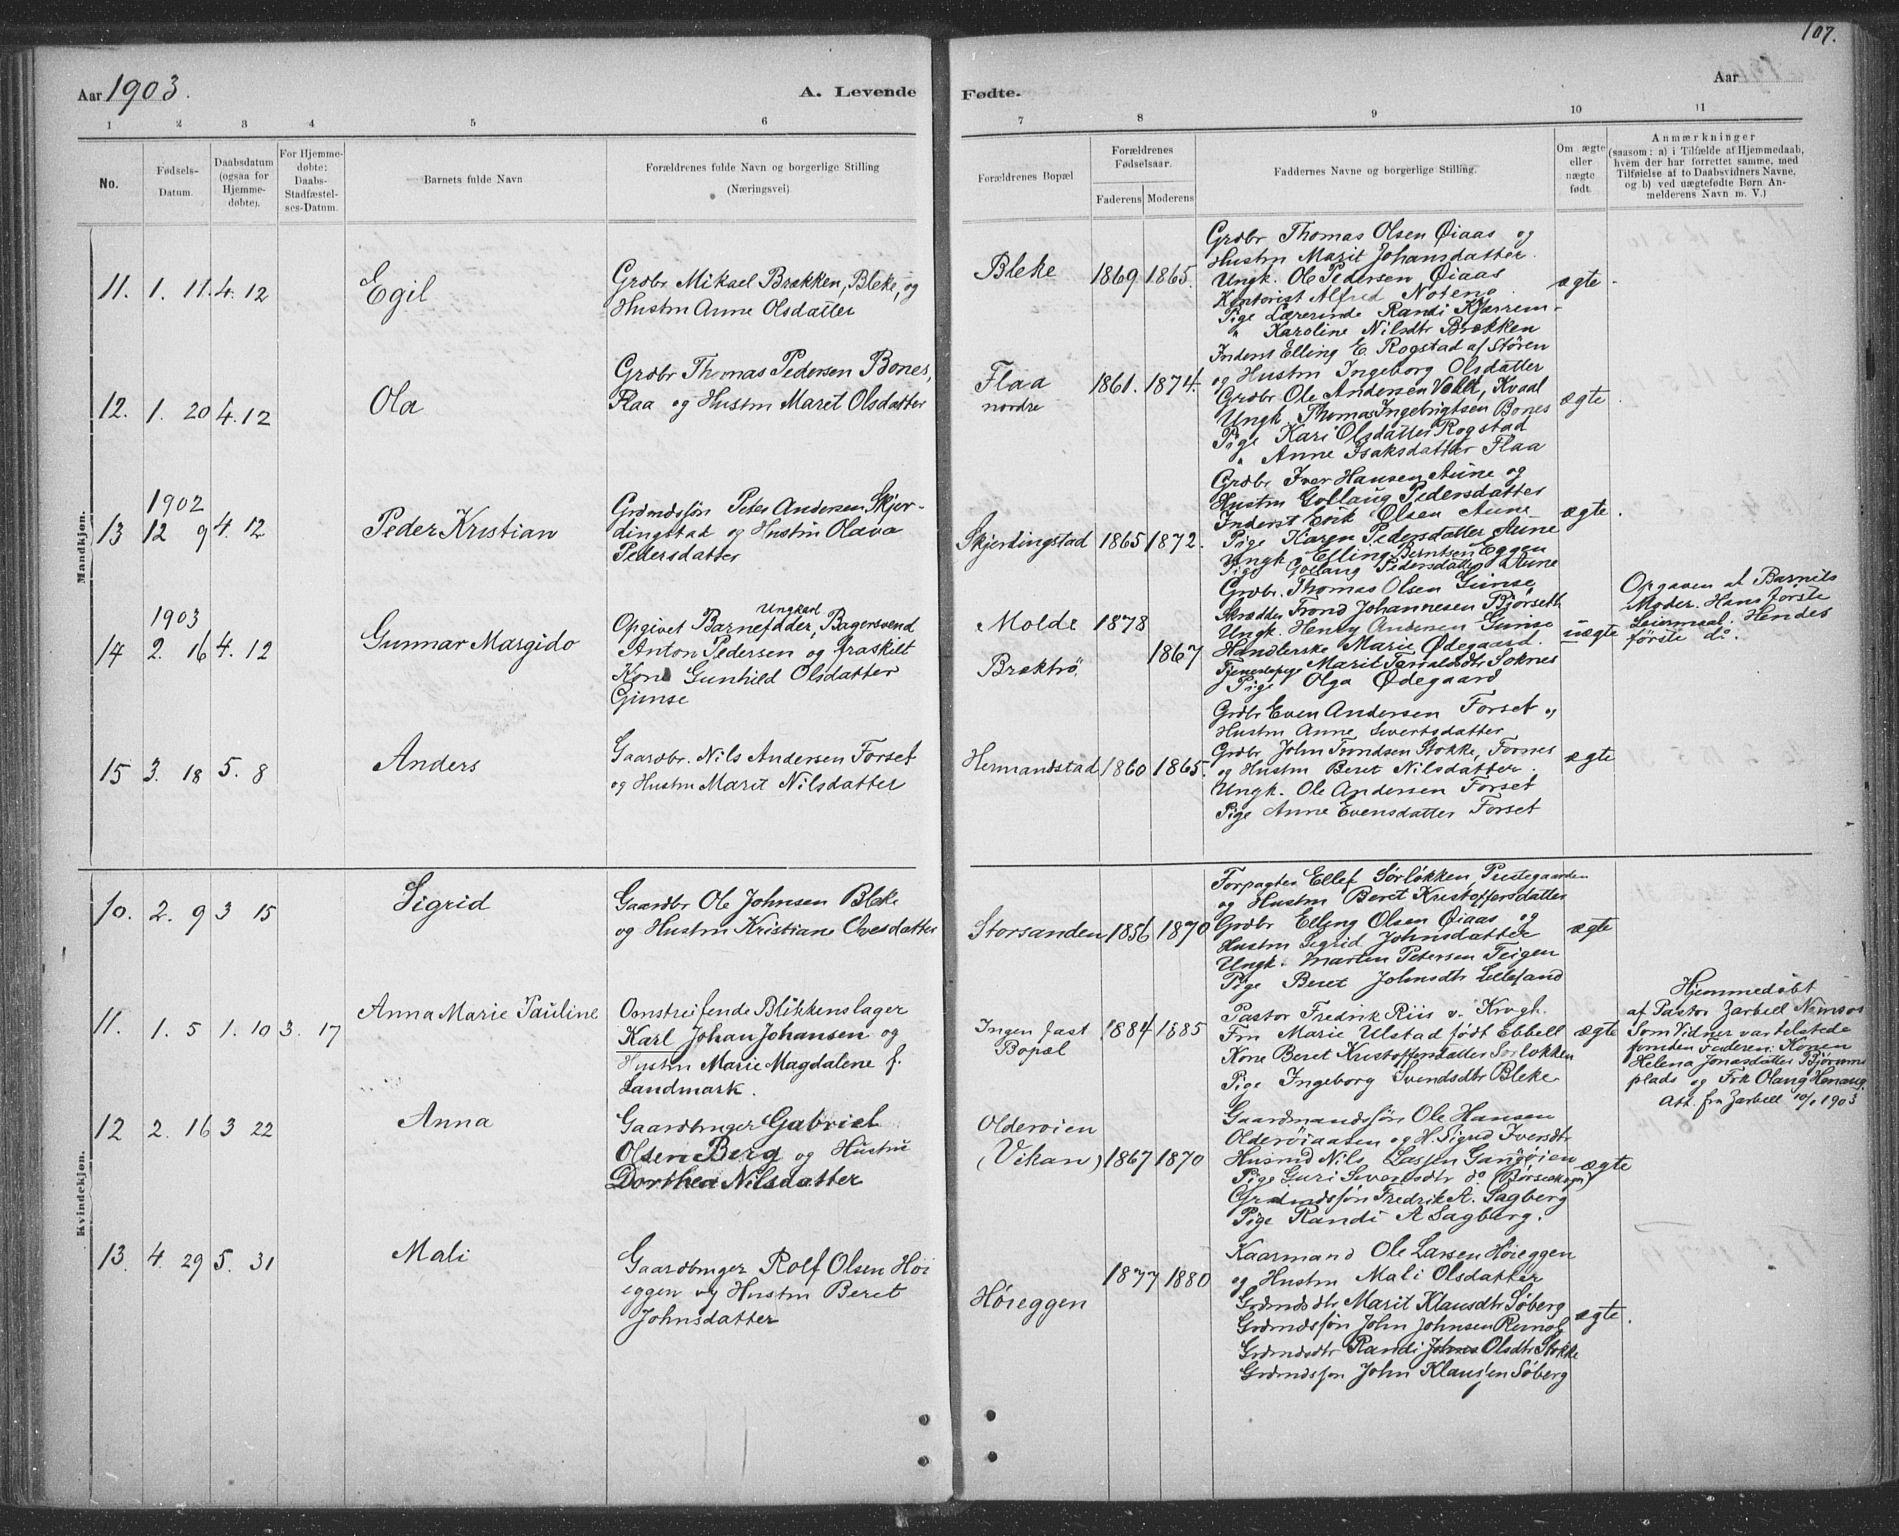 107.
Aar 1903.
A. Levende
Fødte.
Aar
1 2 3 4 5 6
7 8 9 10 11
No.
Fødsels-
Datum.
Daabsdatum
(ogsaa for
Hjemme-
døbte).
For Hjemme-
døbte:
Daabs-
Stadfæstel-
ses-Datum.
Barnets fulde Navn
Forældrenes fulde Navn og borgerlige Stilling
(Næringsvei)
Forældrenes Bopæl
Forældrenes
Fødselsaar.
Faderens Moderens
Faddernes Navne og borgerlige Stilling.
Om ægte
eller
uægte
født.
Anmærkninger
(saasom: a) i Tilfælde af Hjemmedaab,
hvem der har forrettet samme, med
Tilføielse af to Daabsvidners Navne,
og b) ved uægtefødte Børn An-
melderens Navn m. V.)
Mandkjøn.
11. 1. 11 4. 12
Egil
Grdbr Mikael Brækken, Bleke, og
Hustru Anne Olsdatter
Bleke 1869 1865.
Grdbr Thomas Olsen Øiaas og
Hustru Marit Johansdatter.
Ungk. Ole Pedersen Øiaas
Kontorist Alfred Noteng
Pige Lærerinde Randi Kjærrem
" Karoline Nilsdtr Brækken
ægte
12. 1. 20 4. 12
Ola
Grdbr Thomas Pedersen Bones,
Flaa og Hustru Marit Olsdatter
Flaa
nordre
1861. 1874.
Inderst Elling E. Rogstad af Støren
og Hustru Ingeborg Olsdatter
Grdbr Ole Andersen Kvaal
Ungk. Thomas Ingebrigtsen Bones
Pige Kari Olsdatter Rogstad
" Anne Isaksdatter Flaa
ægte
1902
13 12 9 4. 12
Peder Kristian
Grdmdsøn Peter Andersen Skjer-
dingstad og Hustru Olava
Pedersdatter
Skjerdingstad 1865 1872.
Grdbr Iver Hansen Aune og
Hustru Gollaug Pedersdatter
Inderst Erik Olsen Aune
Pige Karen Pedersdatter Aune
Ungk. Elling Berntsen Eggen
Pige Gollaug Pedersdatter Aune
ægte
1903
14 2. 16 4. 12
Gunnar Margido
Ungkarl
Opgivet Barnefader, Bagersvend
Anton Pedersen og fraskilt
Kone Gunhild Olsdatter
Gimse
Molde 1878
Brektrø 1867
Grdbr. Thomas Olsen Gimse
Skrædder Trond Johannesen Bjørseth
Ungk. Henry Andersen Gimse
Handlerske Marie Ødegaard
Tjenestepige Marit Soknes
Pige Olga Ødegaard
uægte
Opgaven af Barnets
Moder. Hans første
Leiermaal. Hendes
første do.
15 3. 18 5. 8
Anders
Gaardbr. Nils Andersen Forset
og Hustru Marit Nilsdatter
Hermandstad 1860 1865.
Grdbr Even Andersen Forset og
Hustru Anne Sivertsdatter
Grdbr John Trondsen Stokke, Fornes
og Hustru Beret Nilsdatter.
Ungk. Ole Andersen Forset
Pige Anne Evensdatter Forset
ægte
Kvindekjøn.
10. 2. 9 3 15
Sigrid
Gaardbr Ole Johnsen Bleke
og Hustru Kristiane Ovesdatter
Storsanden 1856 1870
Forpagter Ellef Sørløkken Prestegaarden
og Hustru Beret Kristoffersdatter
Grdbr Elling Olsen Øiaas og
Hustru Sigrid Johnsdatter
Ungk. Martin Petersen Teigen
Pige Beret Johnsdtr
ægte
11. 1. 5 1. 10 3. 17
Anna Marie Pauline
Omstreifende Blikkenslager
Karl Johan Johansen og
Hustru Marie Magdalene f.
Landmark.
Ingen fast
Bopæl
1884 1885
Pastor Fredrik Riis v. Krogh.
Fru Marie Ulstad født Ebbell
Kone Beret Kristoffersdatter Sørløkken
Pige Ingeborg Svendsdtr Bleke
ægte
Hjemmedøbt
af Pastor Zarbell Namsos
Som Vidner var tilstede
foruden Faderen: Konen
Helena Jonasdatter
plads og Frk Olaug
Att. fra Zarbell 10/1 1903
12 2. 16 3 22
Anna
Gaardbruger Gabriel
Olsen Berg og Hustru
Dorthea Nilsdatter
Olderøien
(Vikan)
1867 1870
Gaardmandsøn Ole Hansen
Olderøiaasen og H. Sigrid Iversdtr
Husmd Nils Larsen Gangøien
Pige Guri Sivertsdtr do
Grdmdsøn Fredrik A. Sagberg
Pige Randi A Sagberg.
ægte
13. 4. 29 5. 31
Mali
Gaardbruger Rolf Olsen Høi
eggen og Hustru Beret
Johnsdatter
Høieggen 1877 1880
Kaarmand Ole Larsen Høieggen
og Hustru Mali Olsdatter
Grdmdsdtr Marit Klausdtr Søberg
Grdmdsøn John Johnsen Rimol
Grdmdsdtr Randi Olsdtr Stokke
Grdmdsøn John Klausen Søberg
ægte.